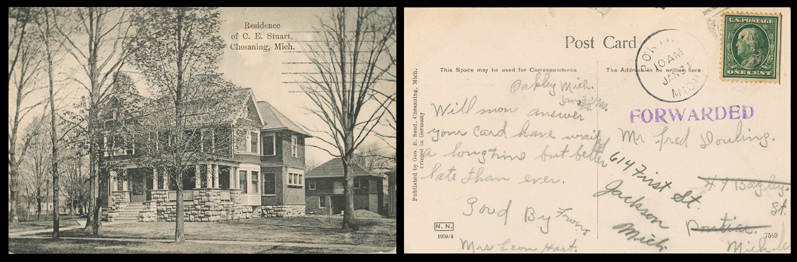 Residence
of C. E. Stuart,
Chesaning, Mich.
Post Card
This Space may be used for Correspondence
The Address to be written here
U.S. POSTAGE
ONE CENT
10 AM
JAN
MICH
FORWARDED
Oakley Mich.
Will mon answer
your Card have waited
a long time but better
late than ever.
Good By From
Mrs Leon Hart.
Mr Fred Douling.
614 First St.
Jackson
Mich
47 Bagley
St.
Pontiac
Mich
Published by Geo. E. Bend, Chesaning, Mich.
Printed in Germany
N. N.
7549